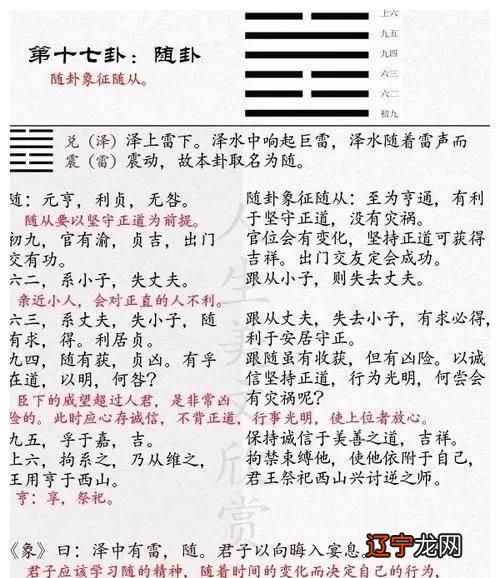 上六
九五
第十七卦：随卦
九四
随卦象征随从。
六三
六二
初九
兑（泽）泽上雷下。泽水中响起巨雷，泽水随着雷声而
震（雷）震动，故本卦取名为随。
随：元亨，利贞，无咎。
随从要以坚守正道为前提。
初九，官有渝，贞吉，出门
交有功。
六二，系小子，失丈夫。
亲近小人，会对正直的人不利。
六三，系丈夫，失小子，随
有求，得。利居贞。
九四，随有获，贞凶。有孚
在道，以明，何咎？
臣下的威望超过人君，是非常凶
险的。此时应心存诚信，不背正道，行事光明，使上位者放心。
九五，孚于嘉，吉。
上六，拘系之，乃从维之，
王用亨于西山。
亨：享，祭祀。
随卦象征随从：至为亨通，有利
于坚守正道，没有灾祸。
官位会有变化，坚持正道可获得
吉祥。出门交友定会成功。
跟从小子，则失去丈夫。
跟从丈夫，失去小子，有求必得，
利于安居守正。
跟随虽有收获，但有凶险。以诚
信坚持正道，行为光明，何尝会
有灾祸呢？
保持诚信于美善之道，吉祥。
拘禁束缚他，使他依附于自己，
君王祭祀西山兴讨逆之师。
人生美文欣赏
《象》曰：泽中有雷，随。君子以向晦入宴息。
君子应该学习随的精神，随着时间的变化而决定自己的行为，
辽宁龙网